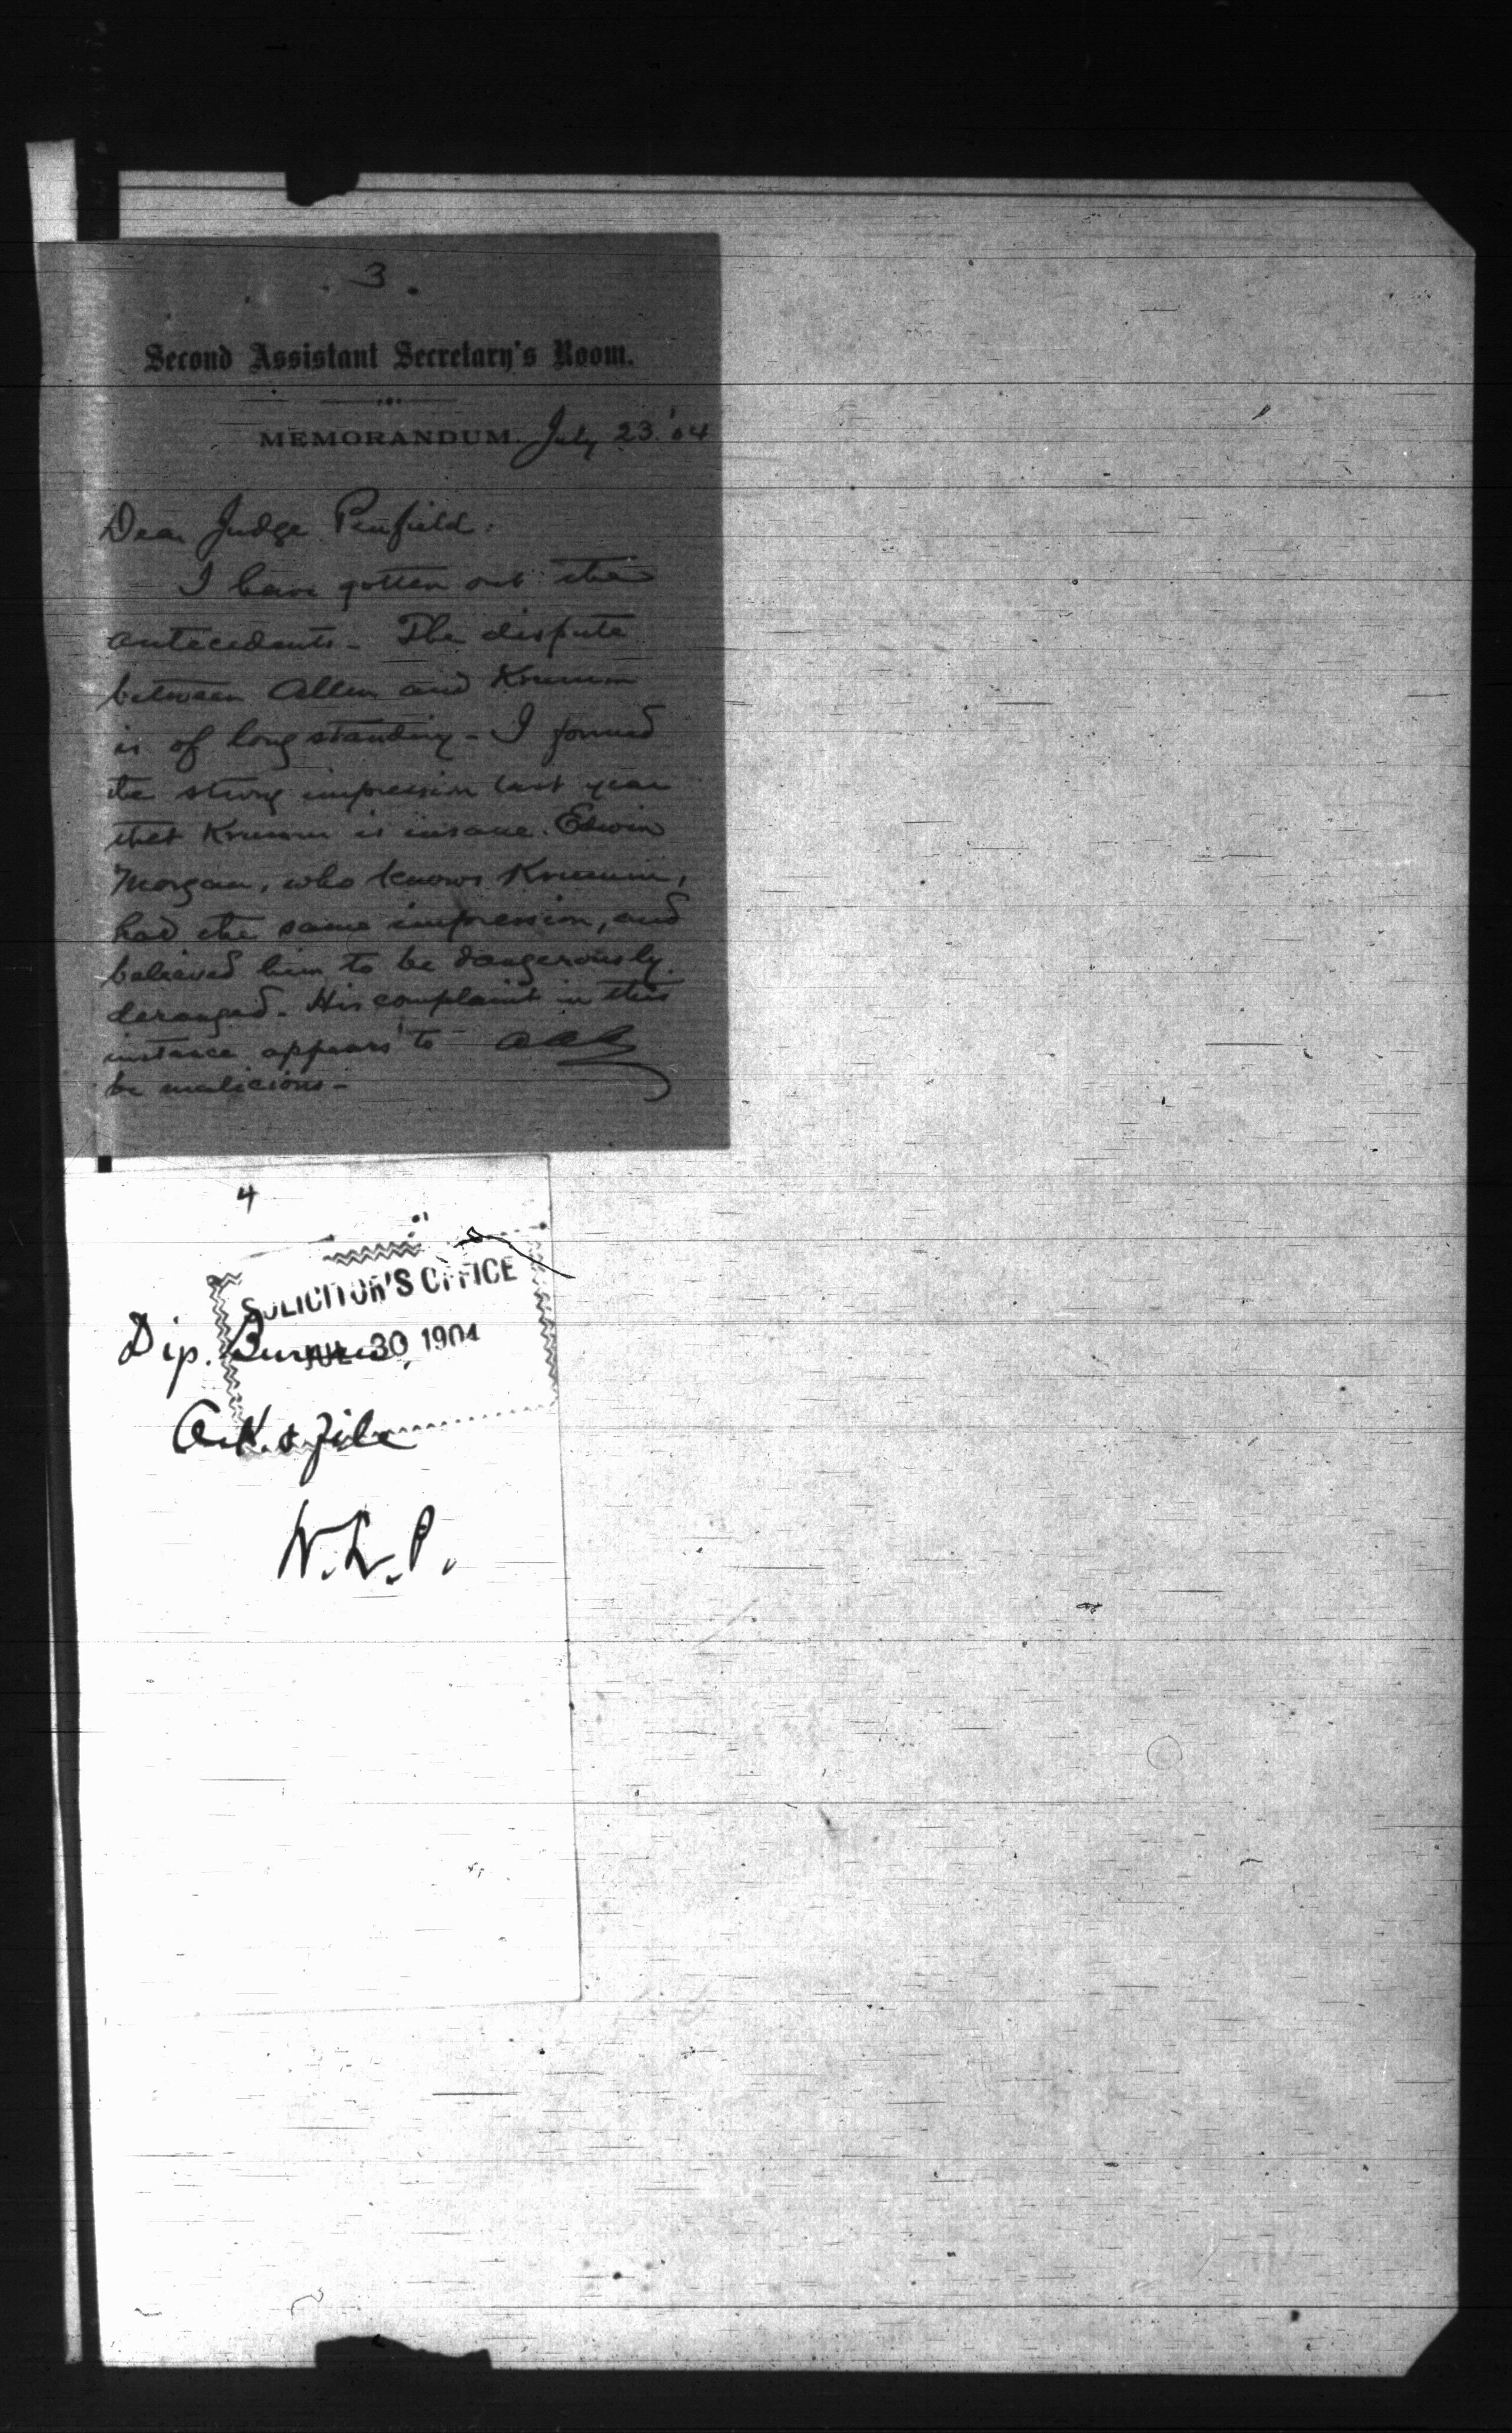 3.
Second Assistant Secretary's Room.
MEMORANDUM. July 23. '04
Dear Judge Penfield:
I have gotten out the
antecedents - The dispute
between Allen and Krumm
is of long standing - I formed
the strong impression last year
that Krumm is insane. Edwin
Morgan, who knows Krumm,
had the same impression, and
believed him to be dangerously
deranged. His complaint in this
instance appears to
be malicious -
4
SOLICITOR'S OFFICE
JUL 30 1904
Dip. Bureau.
Ack. & file
W.L.P.